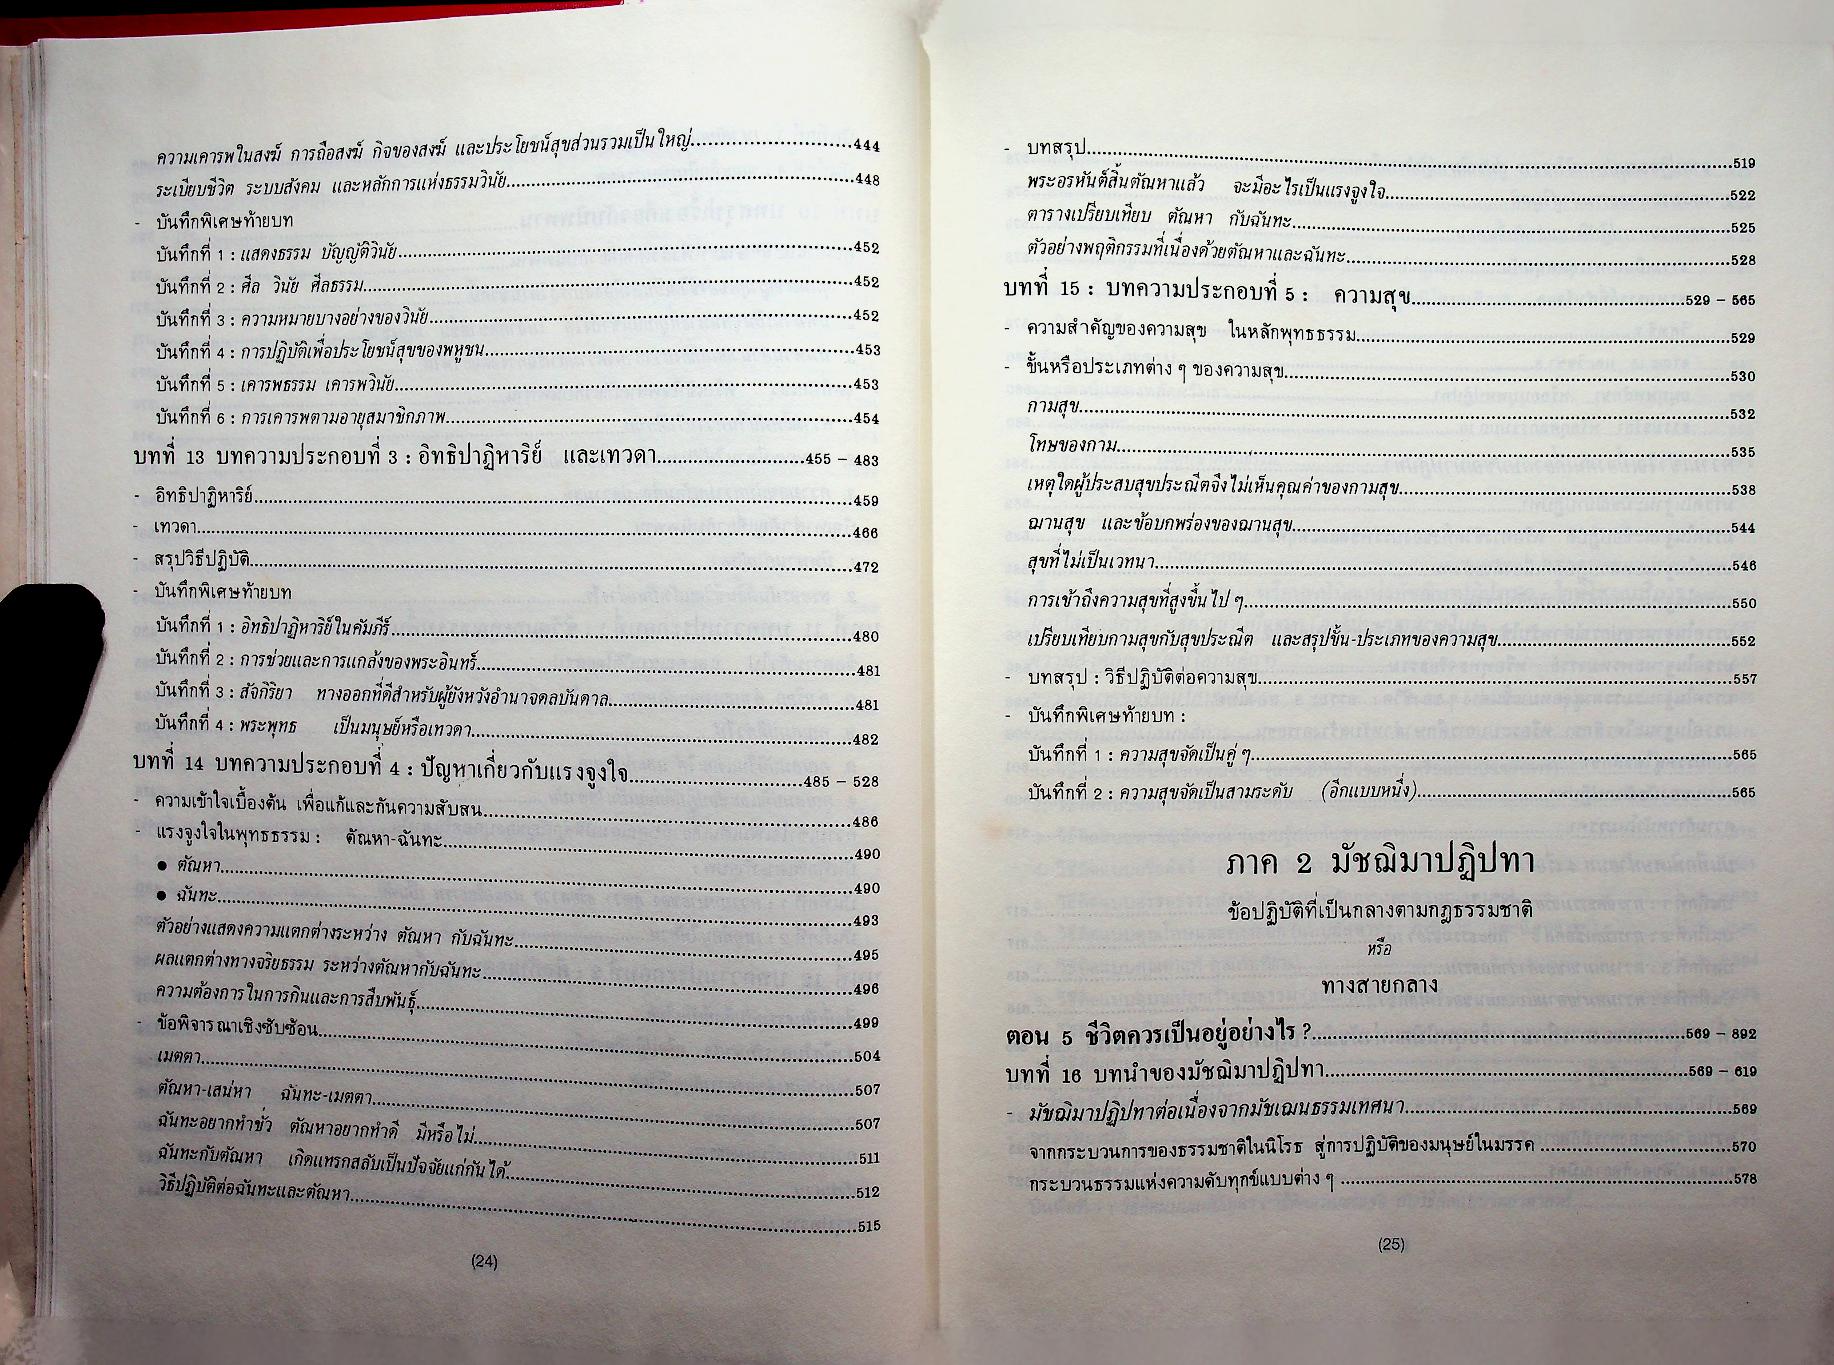 ความเคารพในสงฆ์ การถือสงฆ์ กิจของสงฆ์ และประโยชน์สุขส่วนรวมเป็นใหญ่.....444
ระเบียบชีวิต ระบบสังคม และหลักการแห่งธรรมวินัย.....448
- บันทึกพิเศษท้ายบท
บันทึกที่ 1 : แสดงธรรม บัญญัติวินัย.....452
บันทึกที่ 2 : ศีล วินัย ศีลธรรม.....452
บันทึกที่ 3 : ความหมายบางอย่างของวินัย.....452
บันทึกที่ 4 : การปฏิบัติเพื่อประโยชน์สุขของพหูชน.....453
บันทึกที่ 5 : เคารพธรรม เคารพวินัย.....453
บันทึกที่ 6 : การเคารพตามอายุสมาชิกภาพ.....454
บทที่ 13 บทความประกอบที่ 3 : อิทธิปาฏิหาริย์ และเทวดา.....455 – 483
- อิทธิปาฏิหาริย์.....459
- เทวดา.....466
- สรุปวิธีปฏิบัติ.....472
- บันทึกพิเศษท้ายบท
บันทึกที่ 1 : อิทธิปาฏิหาริย์ในคัมภีร์.....480
บันทึกที่ 2 : การช่วยและการแกล้งของพระอินทร์.....481
บันทึกที่ 3 : สัจกิริยา ทางออกที่ดีสำหรับผู้ยังหวังอำนาจดลบันดาล.....481
บันทึกที่ 4 : พระพุทธ เป็นมนุษย์หรือเทวดา.....482
บทที่ 14 บทความประกอบที่ 4 : ปัญหาเกี่ยวกับแรงจูงใจ.....485 – 528
- ความเข้าใจเบื้องต้น เพื่อแก้และกันความสับสน.....486
- แรงจูงใจในพุทธธรรม : ตัณหา-ฉันทะ.....490
● ตัณหา.....490
● ฉันทะ.....493
ตัวอย่างแสดงความแตกต่างระหว่าง ตัณหา กับฉันทะ.....495
ผลแตกต่างทางจริยธรรม ระหว่างตัณหากับฉันทะ.....496
ความต้องการในการกินและการสืบพันธุ์.....499
- ข้อพิจารณาเชิงซับซ้อน.....504
เมตตา.....507
ตัณหา-เสน่หา ฉันทะ-เมตตา.....507
ฉันทะอยากทำชั่ว ตัณหาอยากทำดี มีหรือไม่.....511
ฉันทะกับตัณหา เกิดแทรกสลับเป็นปัจจัยแก่กันได้.....512
วิธีปฏิบัติต่อฉันทะและตัณหา.....515
(24)
- บทสรุป.....519
พระอรหันต์สิ้นตัณหาแล้ว จะมีอะไรเป็นแรงจูงใจ.....522
ตารางเปรียบเทียบ ตัณหา กับฉันทะ.....525
ตัวอย่างพฤติกรรมที่เนื่องด้วยตัณหาและฉันทะ.....528
บทที่ 15 : บทความประกอบที่ 5 : ความสุข.....529 – 565
- ความสำคัญของความสุข ในหลักพุทธธรรม.....529
- ขั้นหรือประเภทต่าง ๆ ของความสุข.....530
กามสุข.....532
โทษของกาม.....535
เหตุใดผู้ประสบสุขประณีตจึงไม่เห็นคุณค่าของกามสุข.....538
ฌานสุข และข้อบกพร่องของฌานสุข.....544
สุขที่ไม่เป็นเวทนา.....546
การเข้าถึงความสุขที่สูงขึ้นไป ๆ.....550
เปรียบเทียบกามสุขกับสุขประณีต และสรุปขั้น-ประเภทของความสุข.....552
- บทสรุป : วิธีปฏิบัติต่อความสุข.....557
- บันทึกพิเศษท้ายบท :
บันทึกที่ 1 : ความสุขจัดเป็นคู่ ๆ.....565
บันทึกที่ 2 : ความสุขจัดเป็นสามระดับ (อีกแบบหนึ่ง).....565
ภาค 2 มัชฌิมาปฏิปทา
ข้อปฏิบัติที่เป็นกลางตามกฎธรรมชาติ
หรือ
ทางสายกลาง
ตอน 5 ชีวิตควรเป็นอยู่อย่างไร ?.....569 – 892
บทที่ 16 บทนำของมัชฌิมาปฏิปทา.....569 – 619
- มัชฌิมาปฏิปทาต่อเนื่องจากมัชเฌนธรรมเทศนา.....569
จากกระบวนการของธรรมชาติในนิโรธ สู่การปฏิบัติของมนุษย์ในมรรค.....570
กระบวนธรรมแห่งความดับทุกข์แบบต่าง ๆ.....578
(25)